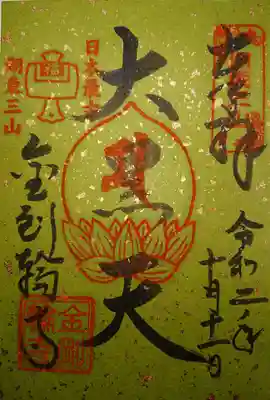 奉拝
令和二年
十月十一日
大黒天
日本最古
湖東三山
金剛輪寺
金剛輪寺